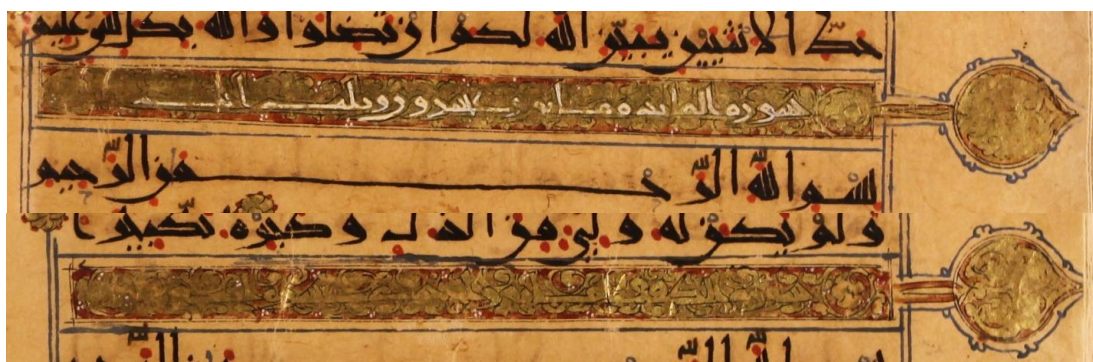 حظ الانثيين يبين الله لكم ان تضلوا والله بكل شي عليم
سورة المائدة مائة وعشرون وثلث ايات
بسم الله الرحمن الرحيم
ولم يكن له ولي من الذل وكبره تكبيرا
بسم الله الرحمن الرحيم